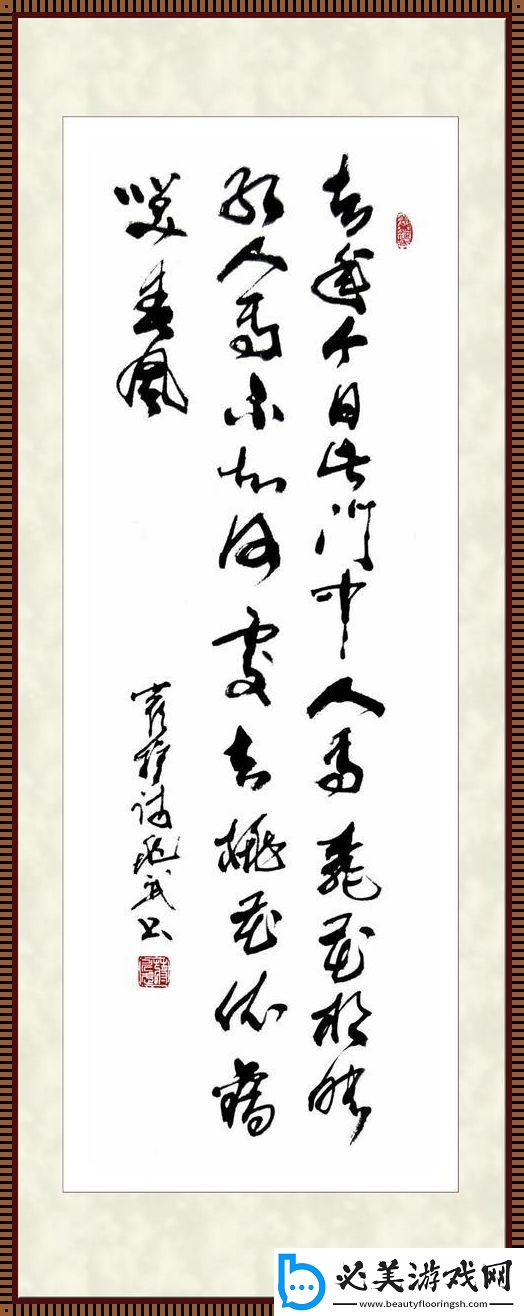 去年今日此門中人面桃花相映
紅人面不知何處去桃花依舊
笑春風
崔护诗 武书
必美游戏网
www.beautyflooringsh.com